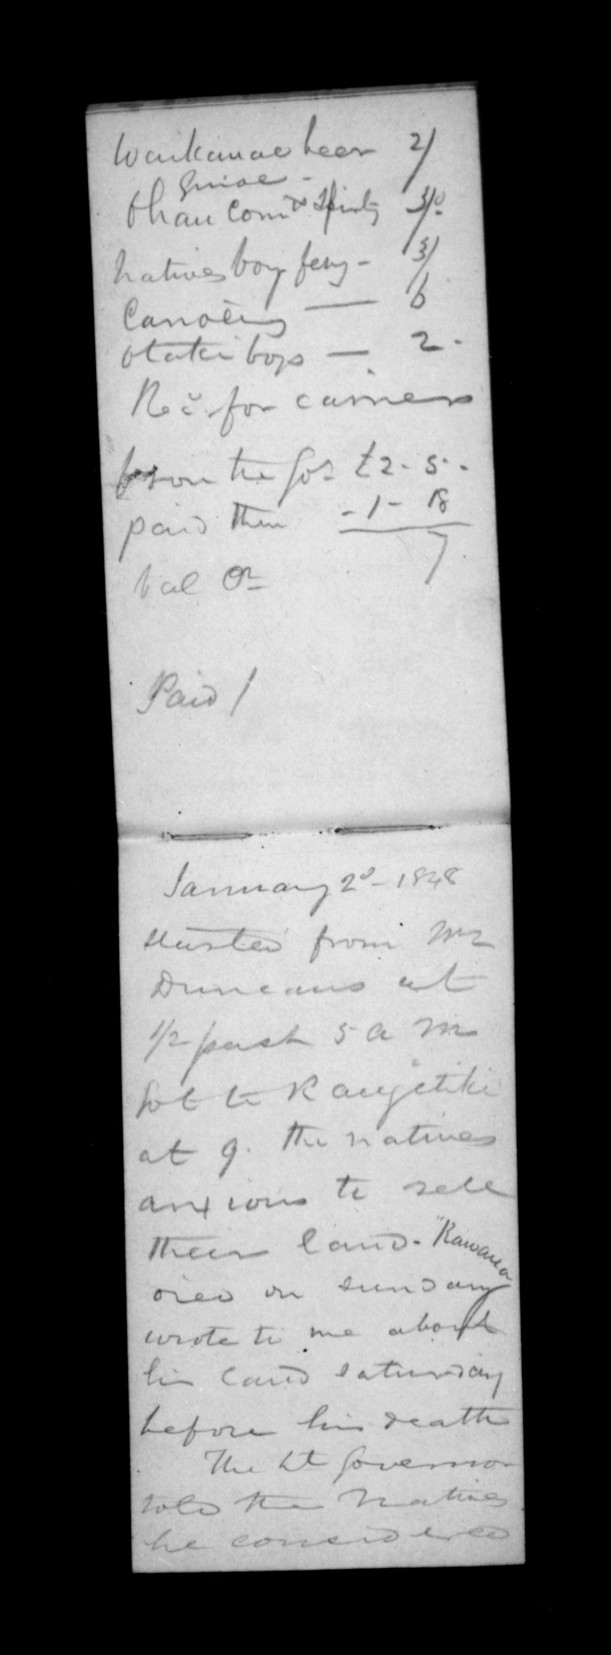 Waikanae beer 2/
Ohau Com
natives boy ferry - 3/
Canoeing — 6
Otaki boys — 2 -
Rec for carriers
from the Gov £2 - 5 -
paid them - 1 - 18
bal Or 7
Paid /
January 2d - 1848
Started from Mr
Duncans at
1/2 past 5 a m
Got to Rangitiki
at 9. the natives
anxious to sell
their land - "Rawaua
died on sunday
wrote to me about
his land saturday
before his death
The Lt Governor
told the Natives
he considered